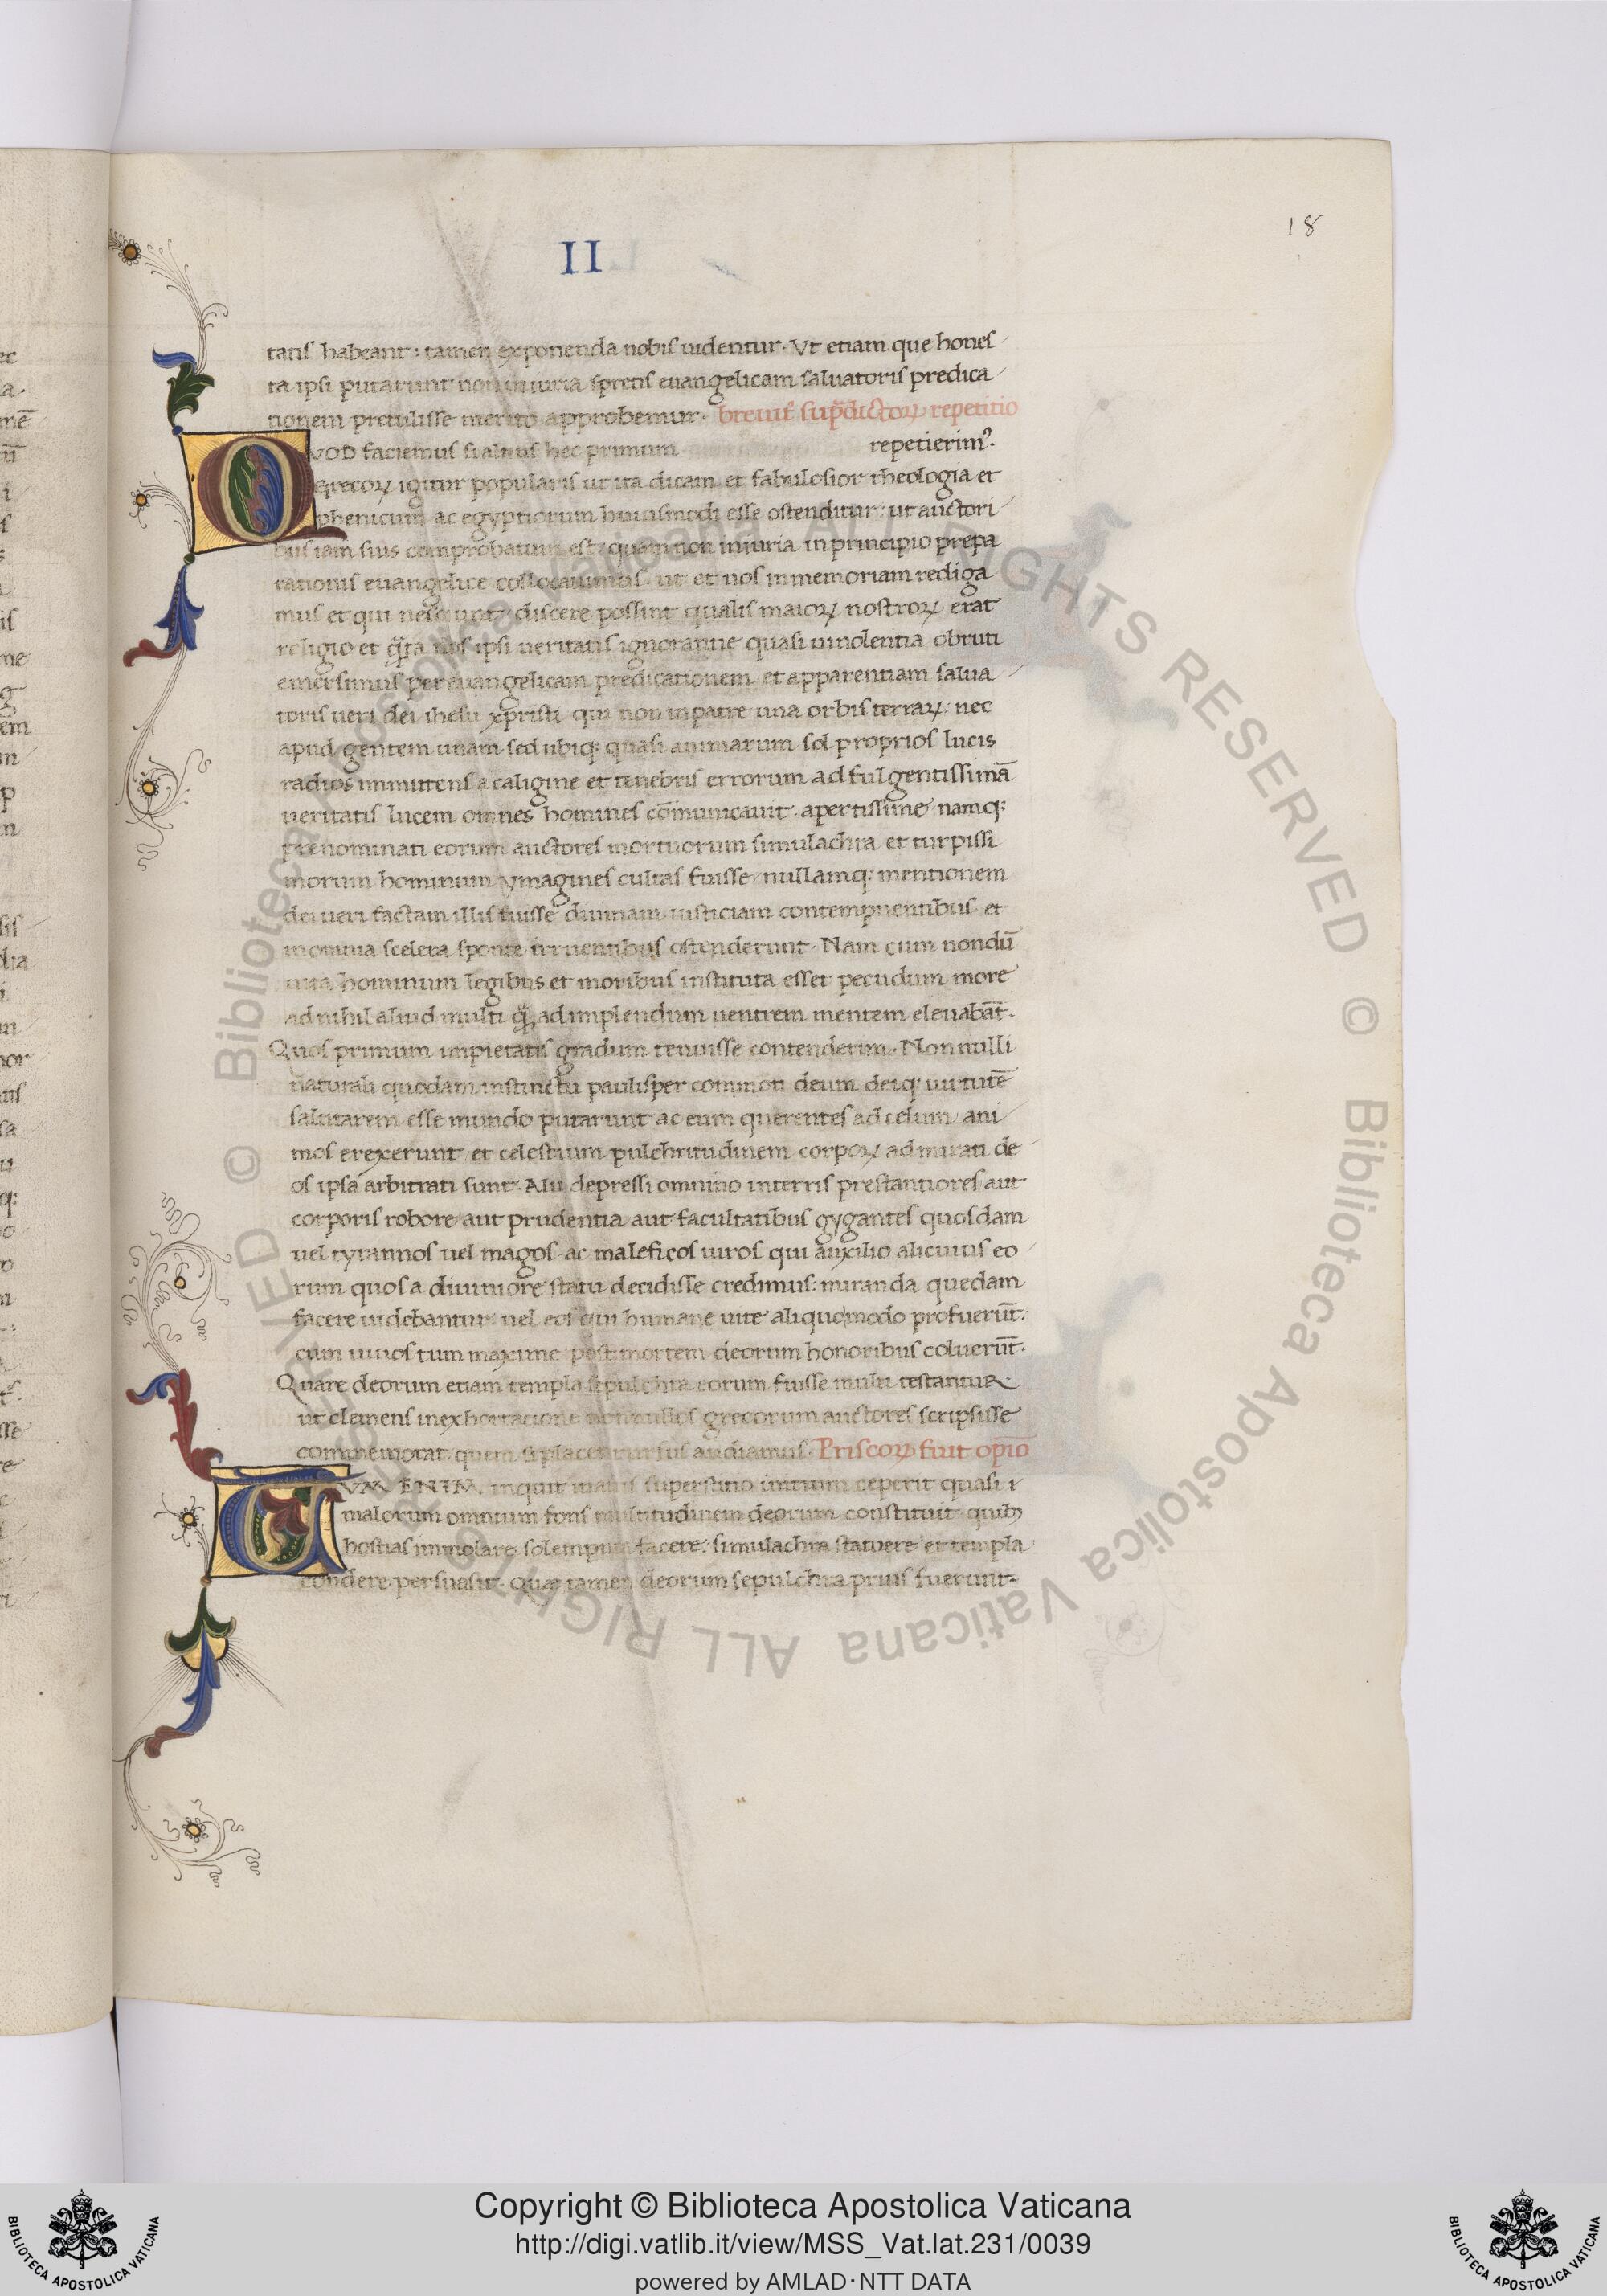 18
II
tatis habeant: tamen exponenda nobis uidentur. Vt etiam que hones
ta ipsi putarunt non iniuria spretis euangelicam saluatoris predica
tionem pretulisse merito approbemur. breuis sup̄dictoꝝ repetitio
QVOD faciemus si altius hec primum repetierimꝰ.
grecoꝝ igitur popularis ut ita dicam et fabulosior theologia et
phenicum ac egyptiorum huiusmodi esse ostenditur: ut auctori
bus iam suis comprobatum est: quam non iniuria in principio prepa
rationis euangelice collocauimus. ut et nos in memoriam rediga
mus et qui nesciunt discere possint qualis maioꝝ nostroꝝ erat
religio et ipsi ueritatis ignorantie quasi uinolentia obruti
emersimus per euangelicam predicationem et apparentiam salua
toris ueri dei ihesu xpristi qui non in parte una orbis terraꝝ: nec
apud gentem unam sed ubiq: quasi animarum sol proprios lucis
radios inmittens a caligine et tenebris errorum ad fulgentissimā
ueritatis lucem omnes homines cōmunicauit. apertissime namq:
prenominati eorum auctores mortuorum simulachra et turpissi
morum hominum ymagines cultas fuisse nullamq: mentionem
dei ueri factam illis fuisse diuinam iusticiam contempnentibus et
in omnia scelera sponte irruentibus ostenderunt. Nam cum nondū
uita hominum legibus et moribus instituta esset pecudum more
ad nihil aliud multi q̄ ad implendum uentrem mentem eleuabāt.
Quos primum impietatis gradum tenuisse contenderim. Nonnulli
naturali quodam instinctu paulisper commoti deum deiq: uirtutē
salutarem esse mundo putarunt ac eum querentes ad celum ani
mos erexerunt et celestium pulchritudinem corpoꝝ admirati de
os ipsa arbitrati sunt. Alii depressi omnino in terris prestantiores aut
corporis robore aut prudentia aut facultatibus gygantes quosdam
uel tyrannos uel magos ac maleficos uiros qui auxilio alicuius eo
rum quos a diuiniore statu decidisse credimus: miranda quedam
facere uidebantur uel eos qui humane uite aliquomodo profuerūt:
cum uiuos tum maxime post mortem deorum honoribus coluerūt.
Quare deorum etiam templa sepulchra eorum fuisse multi testantur
ut clemens in exhortacione nonnullos grecorum auctores scripsisse
commemorat. quem si placet rursus audiamus. Priscoꝝ fuit opīo
CVM ENIM inquit inanis superstitio initium ceperit quasi i
malorum omnium fons multitudinem deorum constituit quibꝫ
hostias immolare solempnia facere: simulachra statuere et templa
condere persuasit. Quæ tamen deorum sepulchra prius fuerunt-
© Biblioteca Apostolica Vaticana ALL RIGHTS RESERVED © Biblioteca Apostolica Vaticana ALL RIGHTS RESERVED
BIBLIOTECA APOSTOLICA VATICANA
Copyright © Biblioteca Apostolica Vaticana
http://digi.vatlib.it/view/MSS_Vat.lat.231/0039
powered by AMLAD·NTT DATA
BIBLIOTECA APOSTOLICA VATICANA